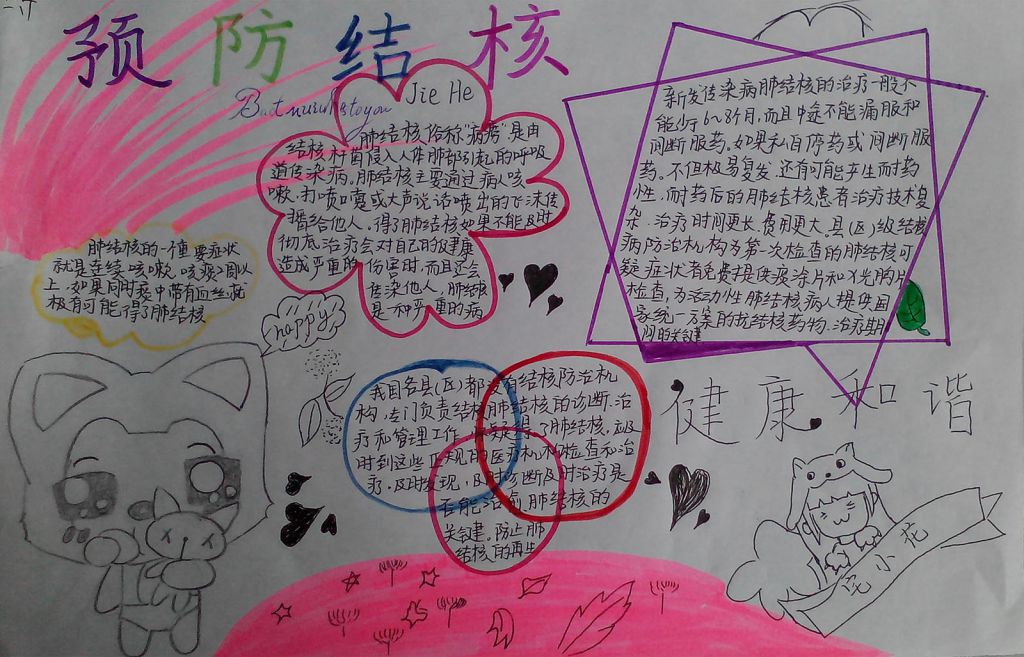 预防结核
Jie He
肺结核俗称"病痨"是由
结核杆菌侵入人体肺部引起的呼吸
道传染病。肺结核主要通过病人咳
嗽、打喷嚏或大声说话喷出的飞沫传
播给他人，得了肺结核如果不能及时
彻底治疗会对自己的健康
造成严重的伤害时，而且还会
传染他人，肺结核
是一种严重的病
新发传染病肺结核的治疗一般不
能少于6~8个月，而且中途不能漏服和
间断服药。如果私自停药或间断服
药。不但极易复发，还有可能产生耐药
性，而耐药后的肺结核患者治疗技术复
杂，治疗时间更长，费用更大，县(区)级结核
病防治机构为第一次检查的肺结核可
疑症状者免费提供痰涂片和X光胸片
检查，为活动性肺结核病人提供国
家统一方案的抗结核药物，治疗期
间的关键
肺结核的一个重要症状
就是连续咳嗽、咳痰2周以
上，如果同时痰中带有血丝，就
极有可能得了肺结核
happy!
我国各县(区)都设有结核防治机
构，专门负责结核肺结核的诊断、治
疗和管理工作，怀疑得了肺结核，应及
时到这些正规的医疗机构检查和治
疗，及时发现，及时诊断及时治疗是
否能治愈肺结核的
关键，防止肺
结核的再生
健康和谐
花小花